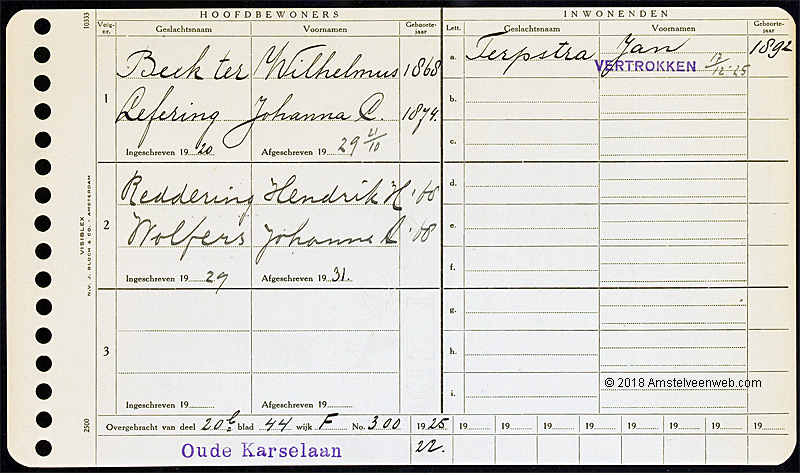 HOOFDBEWONERS
INWONENDEN
Volg-nr.
Geslachtsnaam
Voornamen
Geboorte-jaar
Lett.
Geslachtsnaam
Voornamen
Geboorte-jaar
1
Beek ter Wilhelmus 1868
Lefering Johanna C. 1874.
Ingeschreven 19 20
Afgeschreven 19 29 21/10
2
Reddering Hendrik H '68
Wolfers Johanna C '68
Ingeschreven 19 29
Afgeschreven 19 31.
3
Ingeschreven 19
Afgeschreven 19
a. Terpstra Jan 1892
VERTROKKEN 17/12-25
b.
c.
d.
e.
f.
g.
h.
i.
© 2018 Amstelveenweb.com
Overgebracht van deel 20b blad 44 wijk F No. 300
19 25 19 19 19 19 19 19 19 19
22.
Oude Karselaan
10333
VISIBLEX
N.V. J. BLOCH & CO. - AMSTERDAM
2500